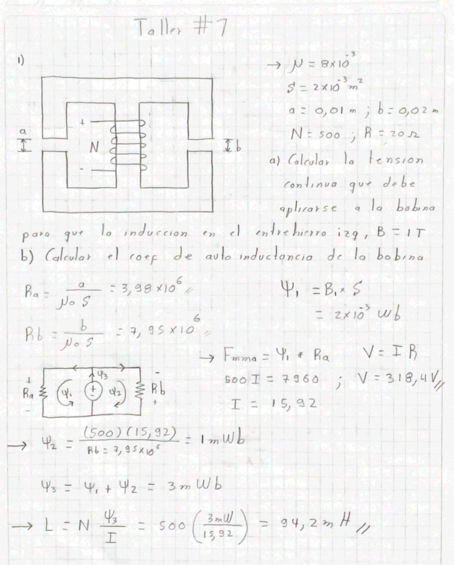 Taller #7
1)
→ μ = 8x10⁻³
S = 2x10⁻³ m²
a = 0,01 m ; b = 0,02 m
N = 500 ; R = 20 Ω
a
+
N
-
b
a) Calcular la tension
continua que debe
aplicarse a la bobina
para que la induccion en el entrehierro izq, B = 1T
b) Calcular el coef de auto inductancia de la bobina
Ra = a / μo S = 3,98x10⁶ //
Rb = b / μo S = 7,95x10⁶ //
Ψ₁ = B₁ x S
= 2x10⁻³ Wb
→ Fmma = Ψ₁ * Ra V = I R
500 I = 7960 ; V = 318,4 V //
I = 15,92
+ Ra - Ψ₁ Ψ₃ + - Ψ₂ - Rb +
→ Ψ₂ = (500)(15,92) / Rb = 7,95x10⁶ = 1mWb
Ψ₃ = Ψ₁ + Ψ₂ = 3mWb
→ L = N Ψ₃ / I = 500 (3mW / 15,92) = 94,2 m H //